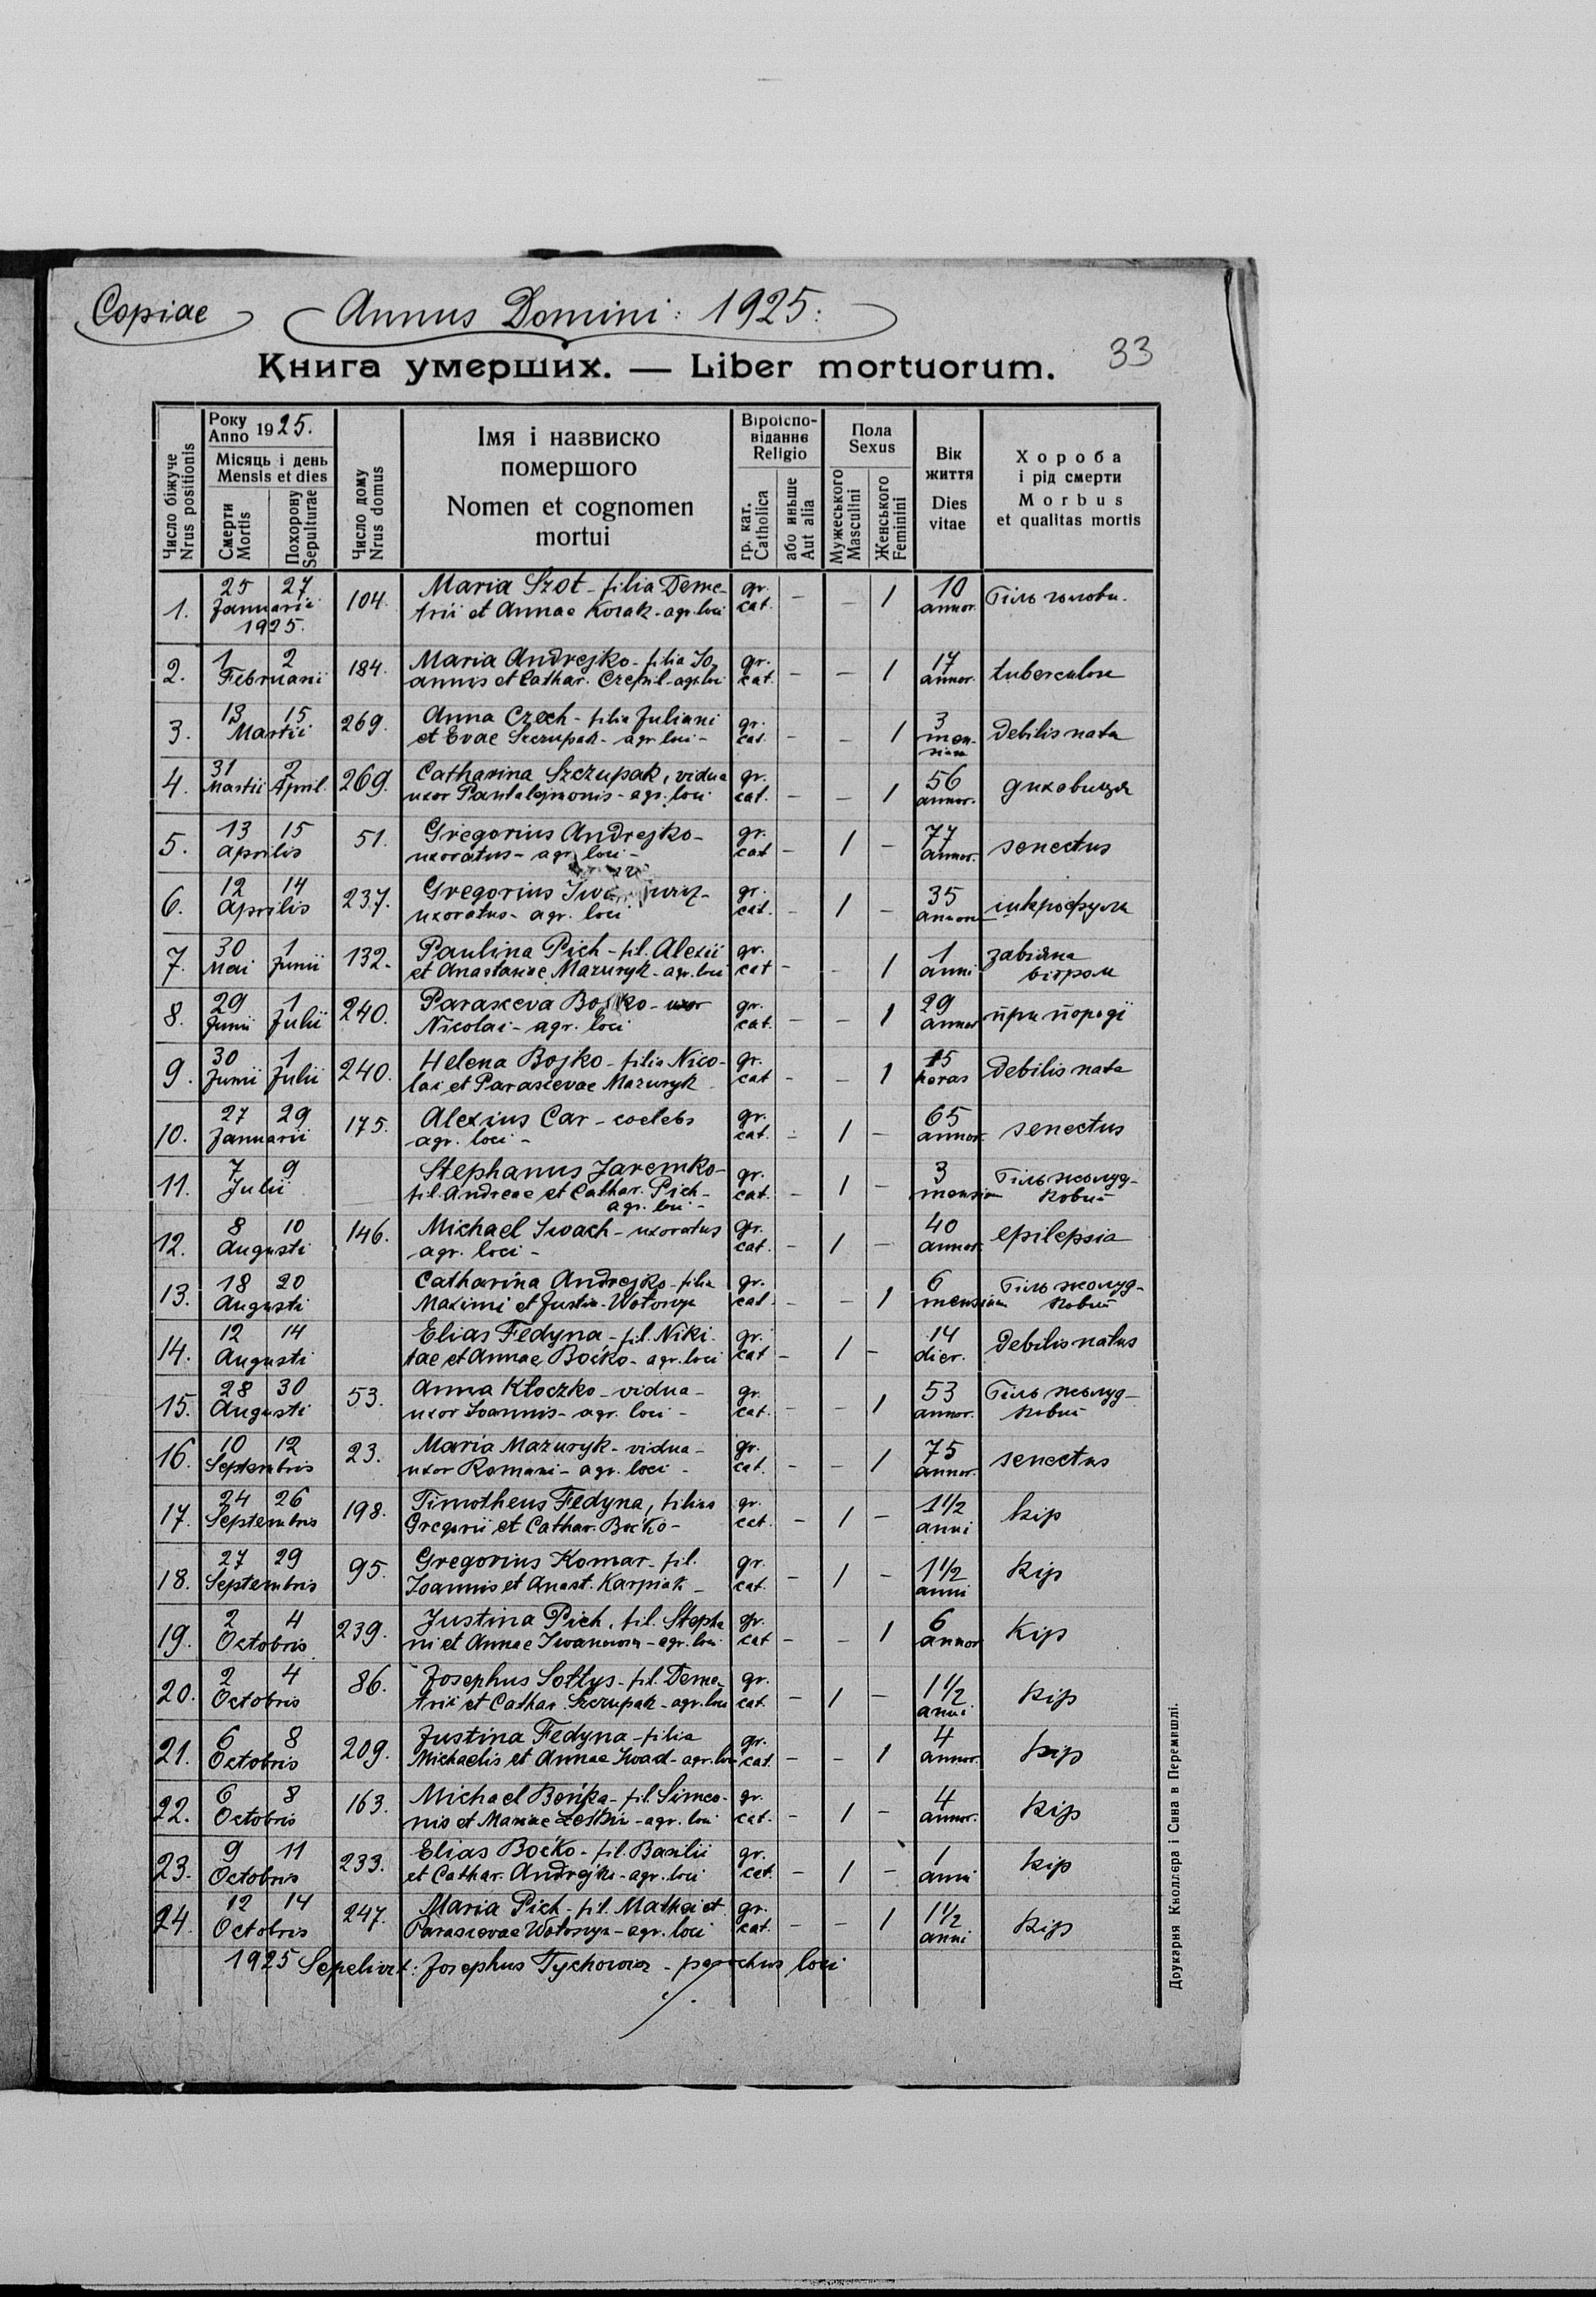 Copiae Annus Domini: 1925:
33
Книга умерших. — Liber mortuorum.
Число біжуче
Nrus positionis
Року
Anno 1925.
Місяць і день
Mensis et dies
Смерти
Mortis
Похорону
Sepulturae
Число дому
Nrus domus
Імя і назвиско
помершого
Nomen et cognomen
mortui
Віроіспо-
віданнє
Religio
гр. кат.
Catholica
або иньше
Aut alia
Пола
Sexus
Мужеського
Masculini
Женського
Feminini
Вік
життя
Dies
vitae
Хороба
і рід смерти
Morbus
et qualitas mortis
1. 25 27 Januarii 1925. 104. Maria Szot - filia Deme-
trii et Annae Kozak - agr. loci gr. cat. - - 1 10 annor. Тіль голови.
2. 1 2 Februarii 184. Maria Andrejko - filia Jo-
annis et Cathar. Czepil - agr. loci gr. cat. - - 1 17 annor. tuberculose
3. 13 15 Martii 269. Anna Czech - filia Juliani
et Evae Szczupak - agr. loci - gr. cat. - - 1 3 mensium Debilis nata
4. 31 Martii 2 April. 269. Catharina Szczupak, vidua
uxor Pantalejmonis - agr. loci gr. cat. - - 1 56 annor. духовиця
5. 13 15 Aprilis 51. Gregorius Andrejko -
uxoratus - agr. loci - gr. cat - 1 - 77 annor. senectus
6. 12 14 Aprilis 237. Gregorius
uxoratus - agr. loci gr. cat. - 1 - 35
7. 30 Mai 1 Junii 132. Paulina Pich - fil. Alexii
et Anastasiae Mazuryk - agr. loci gr. cat - - 1 1 anni завіяна
вітром
8. 29 Junii 1 Julii 240. Parasceva Bojko - uxor
Nicolai - agr. loci gr. cat. - - 1 29 annor при породі
9. 30 Junii 1 Julii 240. Helena Bojko - filia Nico-
lai et Parascevae Mazuryk gr. cat - - 1 15 horas Debilis nata
10. 27 29 Januarii 175. Alexius Car - coelebs
agr. loci - gr. cat. - 1 - 65 annor. senectus
11. 7 9 Julii Stephanus Jaremko -
fil. Andreae et Cathar. Pich -
agr. loci - gr. cat. - 1 - 3 mensium Тіль жолуд-
ковий
12. 8 10 Augusti 146. Michael Iwach - uxoratus
agr. loci - gr. cat. - 1 - 40 annor. epilepsia
13. 18 20 Augusti Catharina Andrejko - filia
Maximi et Justin. Wołoszyn gr. cat - - 1 6 mensium Тіль жолуд-
ковий
14. 12 14 Augusti Elias Fedyna - fil. Niki-
tae et Annae Boćko - agr. loci gr. cat - 1 - 14 dier. Debilis natus
15. 28 30 Augusti 53. Anna Kłoczko - vidua -
uxor Joannis - agr. loci - gr. cat. - - 1 53 annor. Тіль жолуд-
ковий
16. 10 12 Septembris 23. Maria Mazuryk - vidua -
uxor Romani - agr. loci - gr. cat. - - 1 75 annor. senectus
17. 24 26 Septembris 198. Timotheus Fedyna, filius
Gregorii et Cathar. Boćko - gr. cat. - 1 - 1 1/2 anni kip
18. 27 29 Septembris 95. Gregorius Komar - fil.
Joannis et Anast. Karpiak - gr. cat. - 1 - 1 1/2 anni kip
19. 2 4 Octobris 239. Justina Pich, fil. Stepha
ni et Annae - agr. loci gr. cat - - 1 6 annor kip
20. 2 4 Octobris 86. Josephus Sołtys - fil. Deme-
trii et Cathar. Szczupak - agr. loci gr. cat. - 1 - 1 1/2 anni kip
21. 6 8 Octobris 209. Justina Fedyna - filia
Michaelis et Annae - agr. loci gr. cat. - - 1 4 annor. kip
22. 6 8 Octobris 163. Michael - fil. Simeo-
nis et Mariae - agr. loci gr. cat. - 1 - 4 annor. kip
23. 9 11 Octobris 233. Elias Boćko - fil. Basilii
et Cathar. Andrejko - agr. loci gr. cat. - 1 - 1 anni kip
24. 12 14 Octobris 247. Maria Pich - fil. Mathei et
Parascevae Wołoszyn - agr. loci gr. cat. - - 1 1 1/2 anni kip
1925 Sepelivit: Josephus - parochus loci
Друкарня Кноллєра і Сина в Перемишлі.